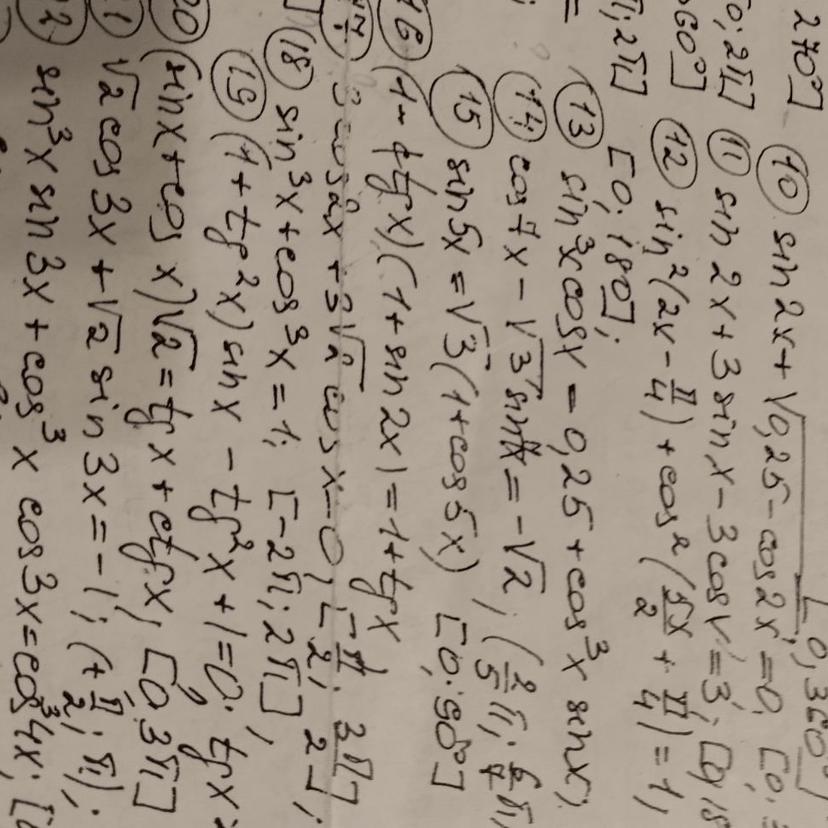 270°]
[0, 360°]
10 sin 2x + √0,25 - cos 2x = 0, [0;
0; 2π] 11 sin 2x + 3 sin x - 3 cos x = 3; [0; 18
360°] 12 sin²(2x - π/4) + cos²(5x/2 + π/4) = 1,
π; 2π] [0; 180];
13 sin³x cos x = 0,25 + cos³x sin x;
14 cos 7x - √3 sin 7x = -√2; (2/5 π; 6/7 π)
15 sin 5x = √3 (1 + cos 5x) [0; 90°]
16 (1 - tg x)(1 + sin 2x) = 1 + tg x
17 3 cos 2x + 3√2 cos x = 0, [-π/2; 3π/2];
18 sin³x + cos³x = 1; [-2π; 2π],
19 (1 + tg²x) sin x - tg²x + 1 = 0; tg x
20 (sin x + cos x)√2 = tg x + ctg x; [0; 3π]
21 √2 cos 3x + √2 sin 3x = -1; (+π/2; π);
22 sin³x sin 3x + cos³x cos 3x = cos³4x; [